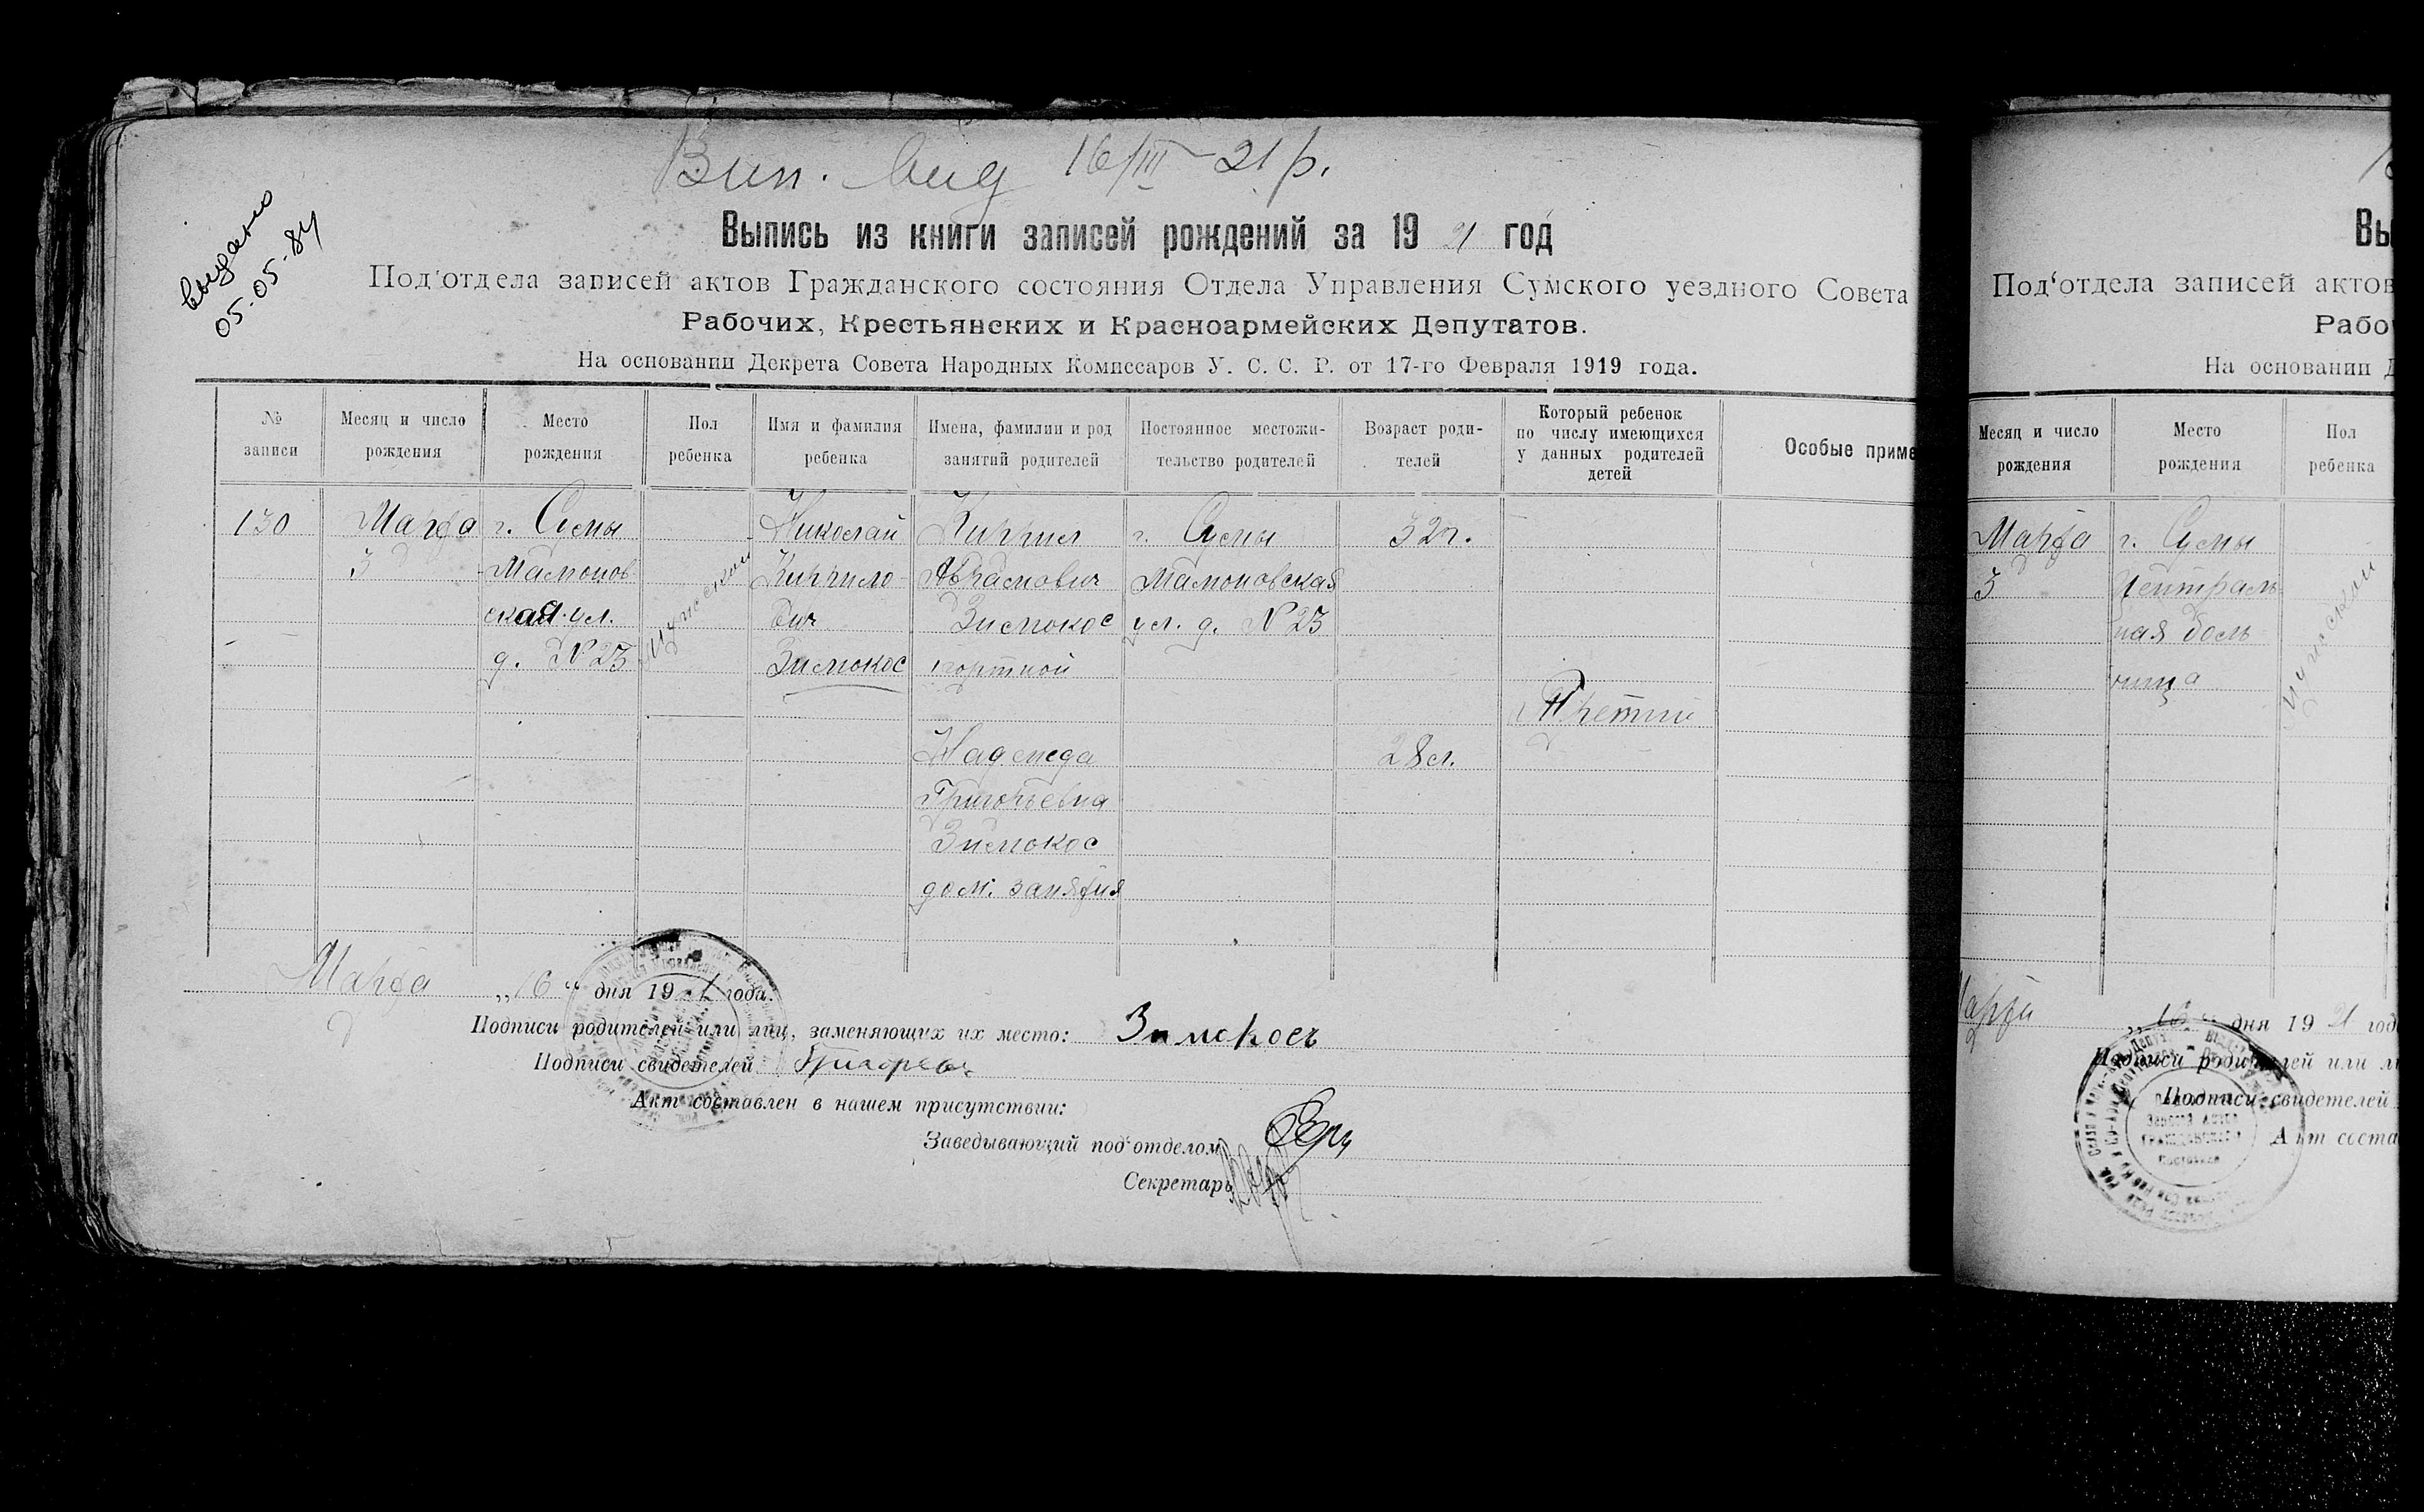 Вип. вид 16/III 21 р.
выдано
05-05-84
Выпись из книги записей рождений за 19 21 год
Под'отдела записей актов Гражданского состояния Отдела Управления Сумского уездного Совета
Рабочих, Крестьянских и Красноармейских Депутатов.
На основании Декрета Совета Народных Комиссаров У. С. С. Р. от 17-го Февраля 1919 года.
№ записи
Месяц и число рождения
Место рождения
Пол ребенка
Имя и фамилия ребенка
Имена, фамилии и род занятий родителей
Постоянное местожительство родителей
Возраст родителей
Который ребенок по числу имеющихся у данных родителей детей
Особые приме
130
Марта
3
г. Сумы
Мамонов
ская ул.
д. № 23
Мужской
Николай
Кирило
вич
Зимокос
Кирил
Абрамович
Зимокос
портной
г. Сумы
Мамоновская
ул. д. № 23
32 г.
Третий
Надежда
Григорьевна
Зимокос
дом. занятия
28 л.
Марта „16“ дня 1921 года.
Подписи родителей или лиц, заменяющих их место: Зимокосъ
Подписи свидетелей
Акт составлен в нашем присутствии:
Заведывающий под'отделом
Секретарь
Вы
Под'отдела записей актов
Рабо
На основании Д
Месяц и число рождения
Место рождения
Пол ребенка
Марта
3
г. Сумы
Централь
ная боль
ница
Мужской
Марта „16“ дня 19 21 год
Подписи родителей или л
Подписи свидетелей
Акт соста